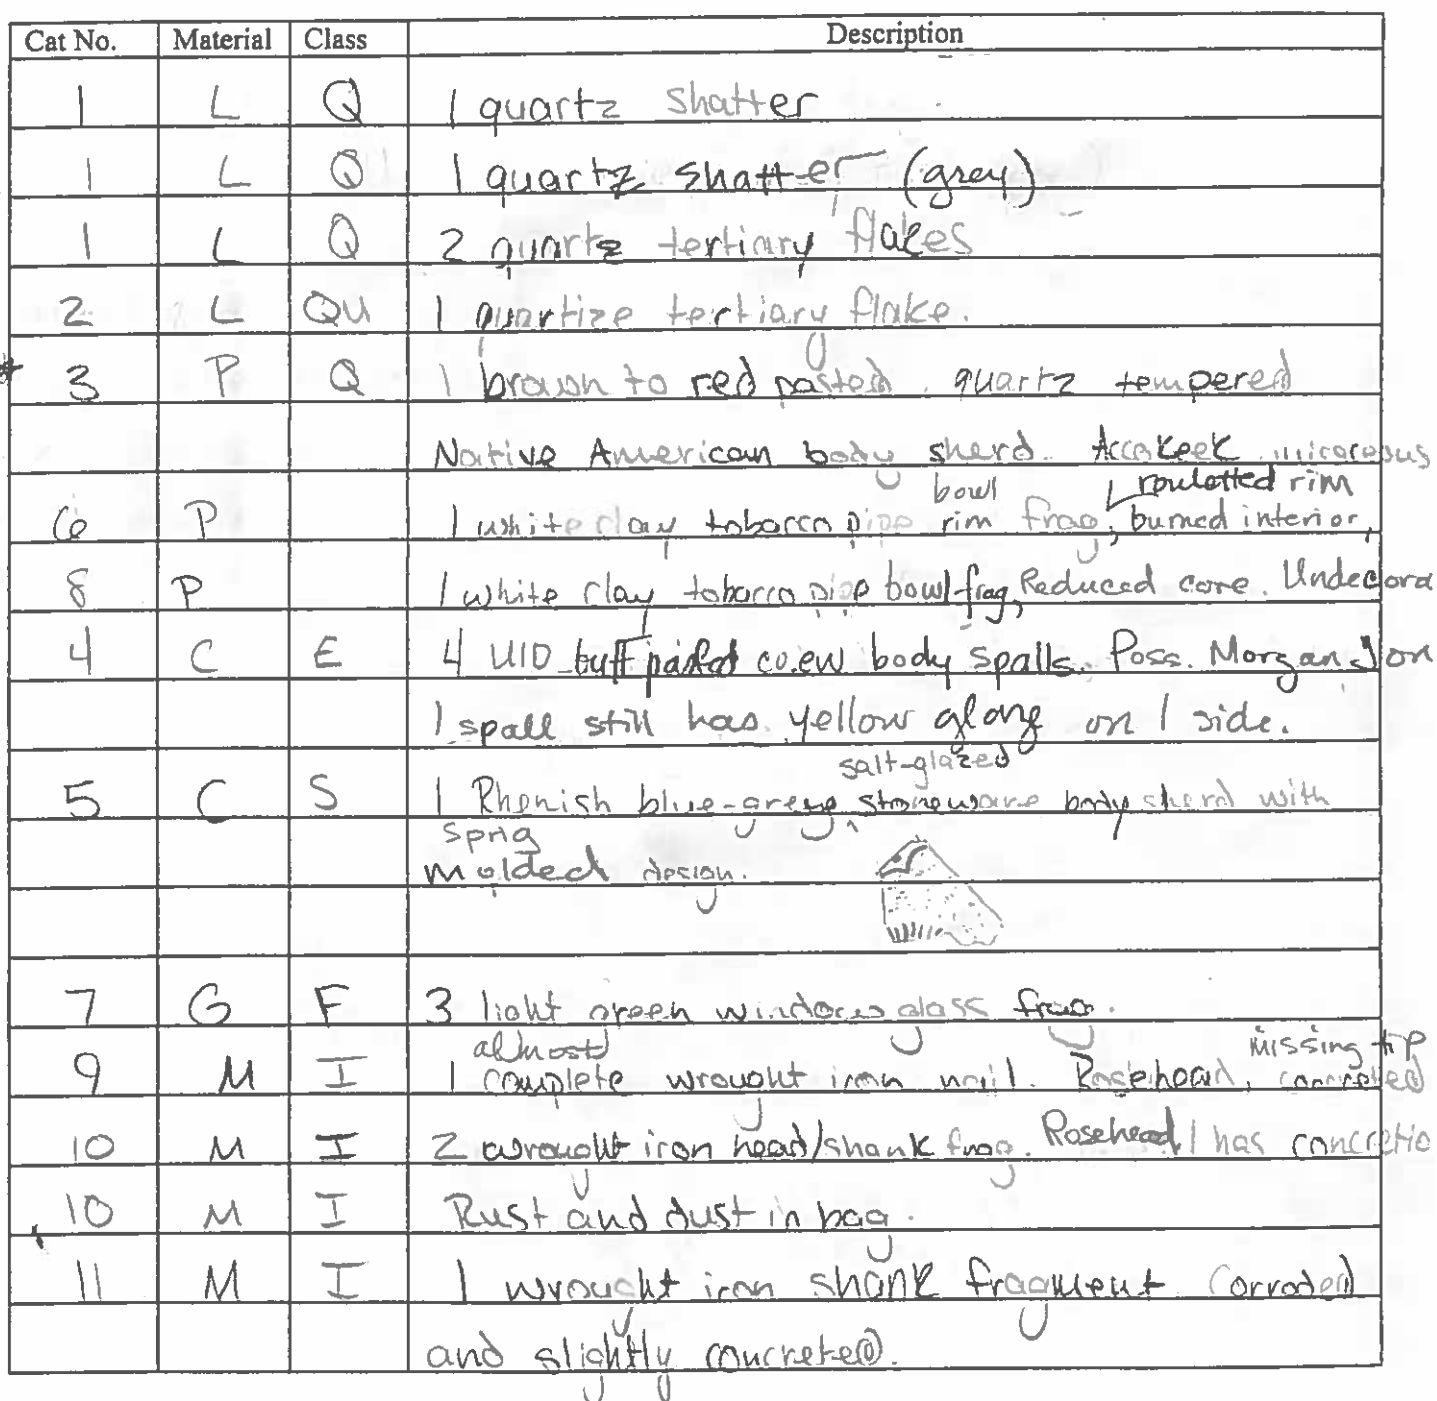 Cat No. Material Class Description
1 L Q 1 quartz shatter
1 L Q 1 quartz shatter (grey)
1 L Q 2 quartz tertiary flakes
2 L QU 1 quartize tertiary flake.
* 3 P Q 1 brown to red pasted quartz tempered
Native American body sherd. Accokeek
bowl roulotted rim
6 P 1 white clay tobacco pipe rim frag, burned interior,
8 P 1 white clay tobacco pipe bowl frag, Reduced core. Undecora
4 C E 4 UID buff pasted co.ew body spalls. Poss. Morgan Jon
1 spall still has yellow glaze on 1 side.
salt-glazed
5 C S 1 Rhenish blue-greye ^ stoneware body sherd with
sprig
molded design.
7 G F 3 light green window glass frag.
almost missing tip
9 M I 1 complete wrought iron nail. Rosehead, concreted
10 M I 2 wrought iron head/shank frag. Rosehead 1 has concretio
10 M I Rust and dust in bag.
11 M I 1 wrought iron shank fragment corroded
and slightly concreted.